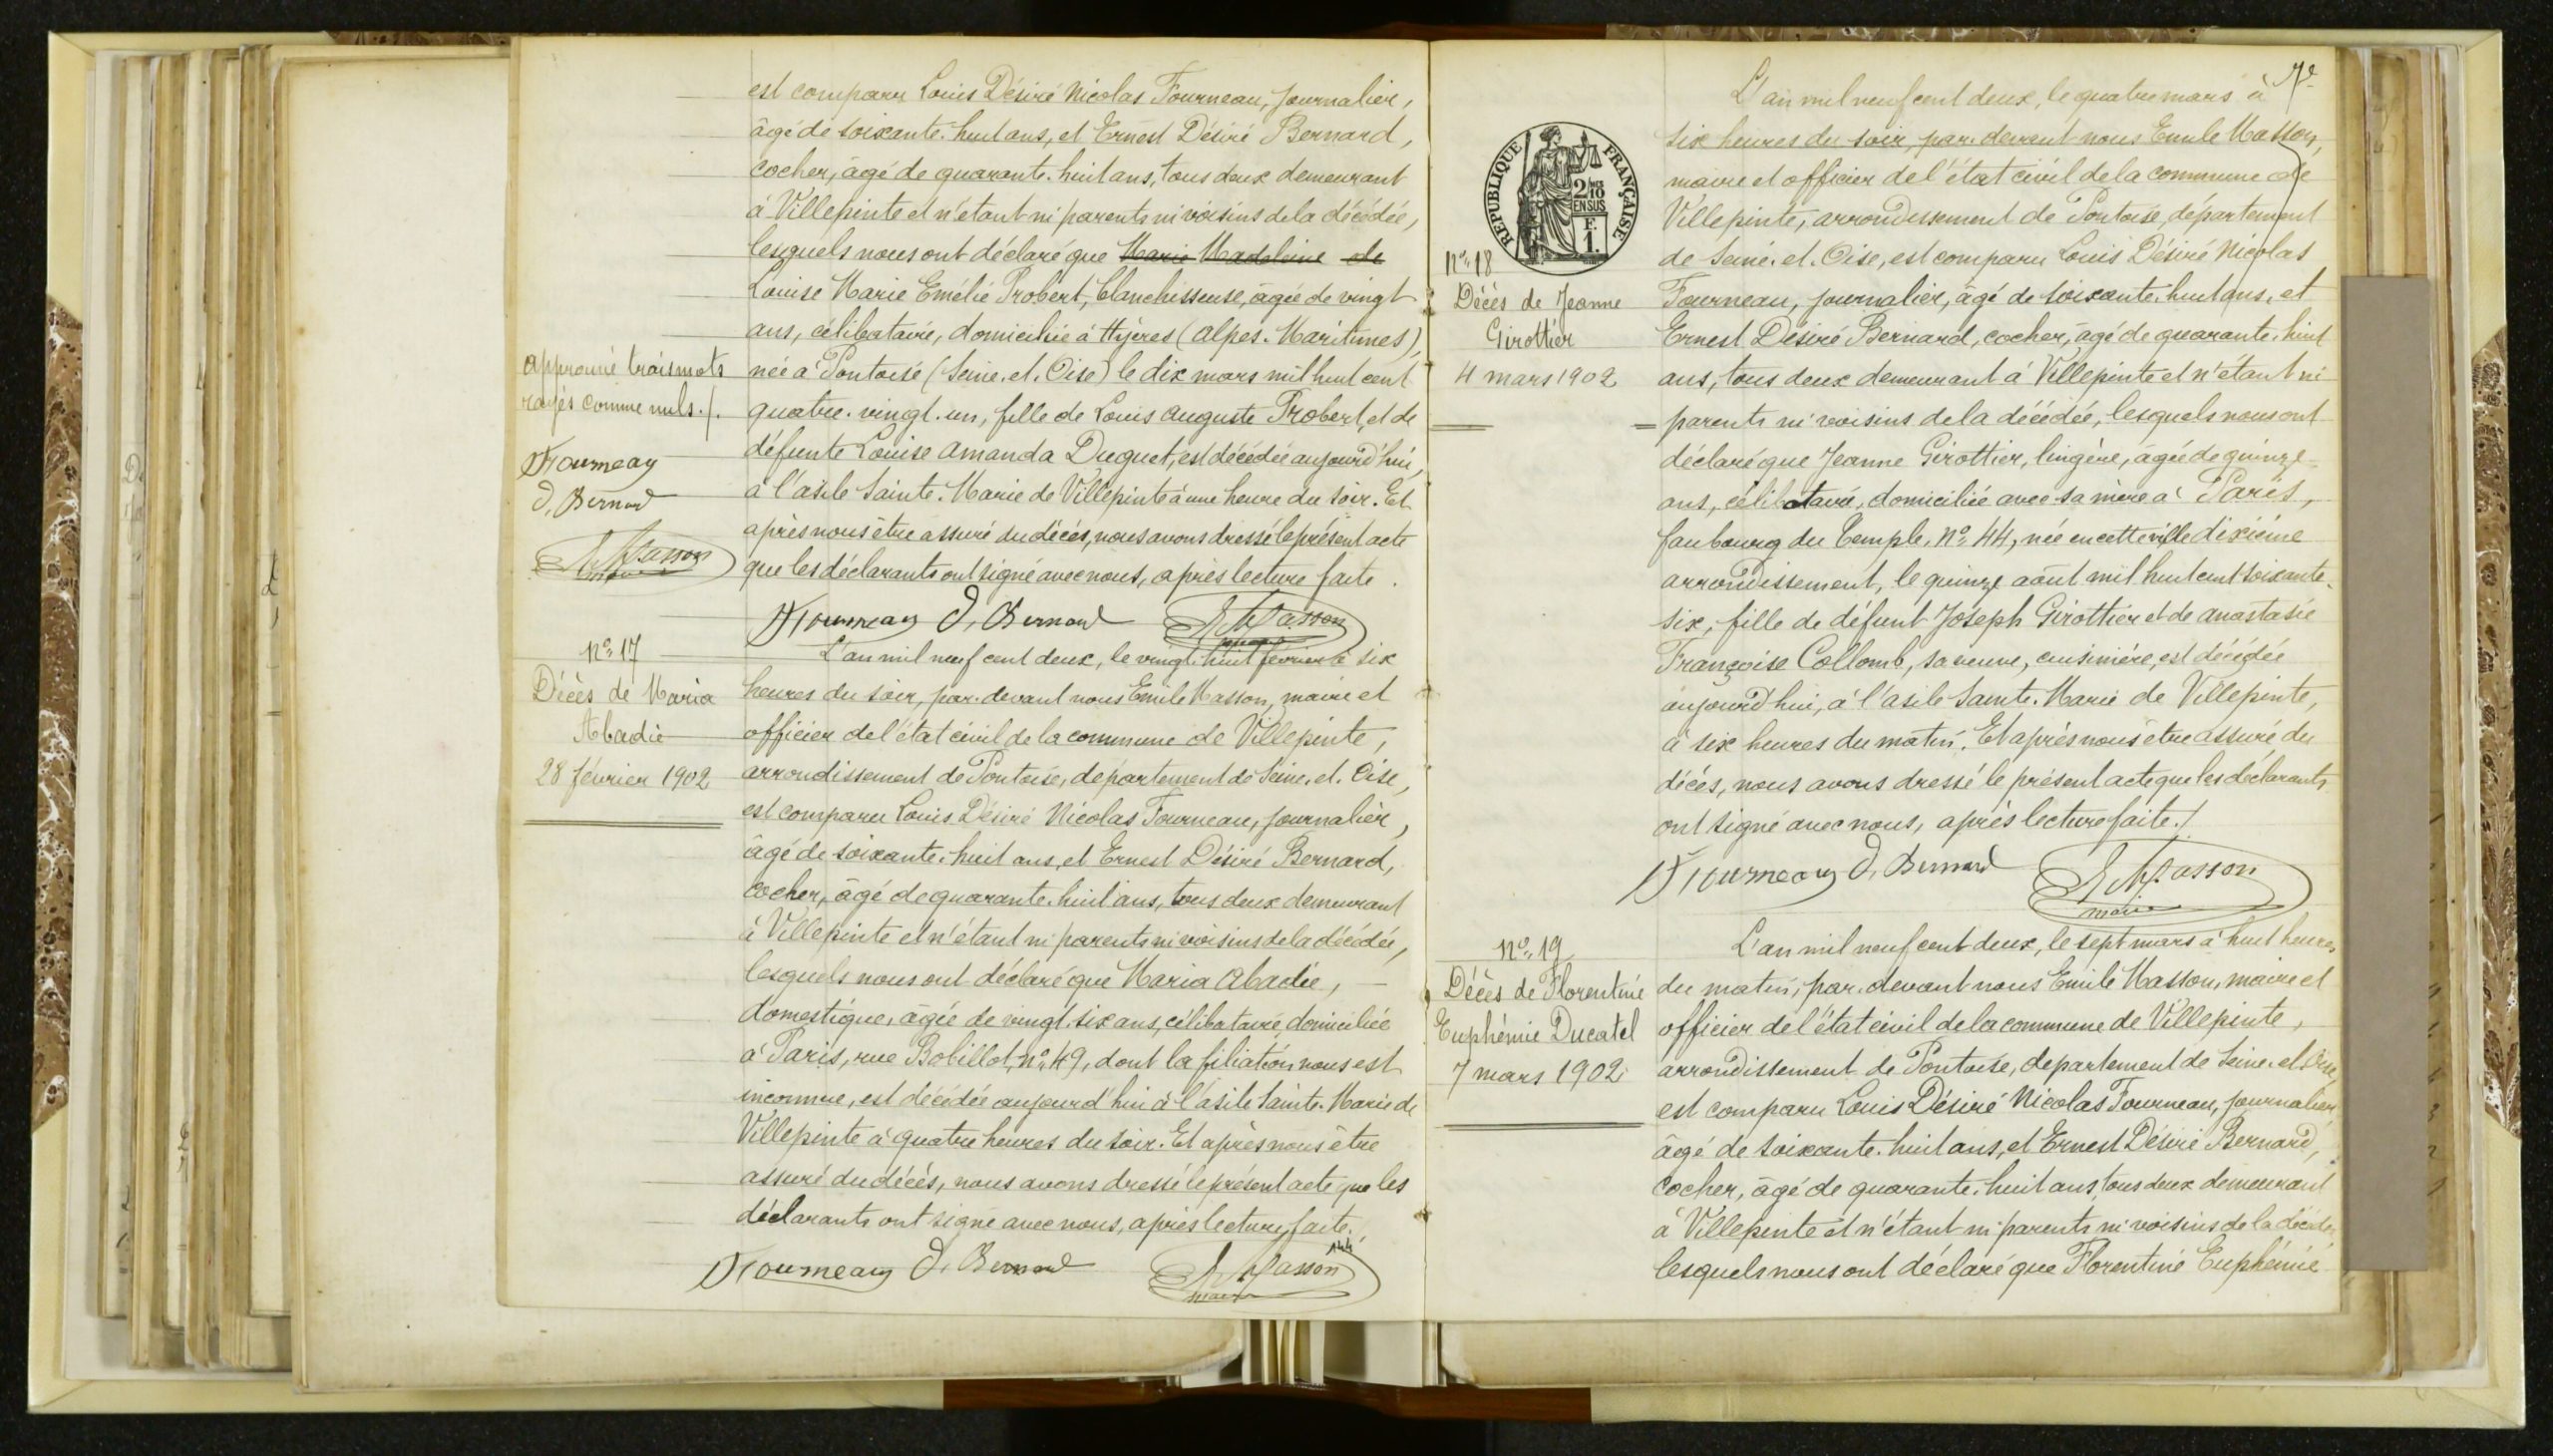 est comparu Louis Désiré Nicolas Fourneau, journalier,
âgé de soixante-huit ans, et Ernest Désiré Bernard,
cocher, âgé de quarante-huit ans, tous deux demeurant
à Villepinte et n'étant ni parents ni voisins de la décédée,
lesquels nous ont déclaré que Marie Madeleine de
Louise Marie Emélie Probert, blanchisseuse, âgée de vingt
ans, célibataire, domiciliée à Hyères (Alpes-Maritimes),
née à Pontoise (Seine-et-Oise) le dix mars mil huit cent
quatre-vingt-un, fille de Louis Auguste Probert, et de
défunte Louise Amanda Duquet, est décédée aujourd'hui,
à l'asile Sainte-Marie de Villepinte à une heure du soir. Et
après nous être assuré du décès, nous avons dressé le présent acte
que les déclarants ont signé avec nous, après lecture faite.
approuvé trois mots
rayés comme nuls./.
Fourneau
D. Bernard
E. Masson
maire
Fourneau D. Bernard E. Masson
maire
N° 17
Décès de Maria
Abadie
28 février 1902
L'an mil neuf cent deux, le vingt-huit février à six
heures du soir, par-devant nous Emile Masson, maire et
officier de l'état civil de la commune de Villepinte,
arrondissement de Pontoise, département de Seine-et-Oise,
est comparu Louis Désiré Nicolas Fourneau, journalier,
âgé de soixante-huit ans, et Ernest Désiré Bernard,
cocher, âgé de quarante-huit ans, tous deux demeurant
à Villepinte et n'étant ni parents ni voisins de la décédée,
lesquels nous ont déclaré que Maria Abadie,
domestique, âgée de vingt-six ans, célibataire domiciliée
à Paris, rue Bobillot, n° 49, dont la filiation nous est
inconnue, est décédée aujourd'hui à l'asile Sainte-Marie de
Villepinte à quatre heures du soir. Et après nous être
assuré du décès, nous avons dressé le présent acte que les
déclarants ont signé avec nous, après lecture faite.
144
Fourneau D. Bernard E. Masson
maire
7e
REPUBLIQUE FRANÇAISE
2/10
EN SUS
F.
1.
N° 18
Décès de Jeanne
Girottier
4 mars 1902
L'an mil neuf cent deux, le quatre mars à
six heures du soir, par-devant nous Emile Masson,
maire et officier de l'état civil de la commune de
Villepinte, arrondissement de Pontoise, département
de Seine-et-Oise, est comparu Louis Désiré Nicolas
Fourneau, journalier, âgé de soixante-huit ans, et
Ernest Désiré Bernard, cocher, âgé de quarante-huit
ans, tous deux demeurant à Villepinte et n'étant ni
parents ni voisins de la décédée, lesquels nous ont
déclaré que Jeanne Girottier, lingère, âgée de quinze
ans, célibataire, domiciliée avec sa mère à Paris,
faubourg du Temple, N° 44, née en cette ville dixième
arrondissement, le quinze août mil huit cent soixante-
six, fille de défunt Joseph Girottier et de Anastasie
Françoise Collomb, sa veuve, cuisinière, est décédée
aujourd'hui, à l'asile Sainte-Marie de Villepinte,
à six heures du matin. Et après nous être assuré du
décès, nous avons dressé le présent acte que les déclarants
ont signé avec nous, après lecture faite./.
Fourneau D. Bernard E. Masson
maire
N° 19
Décès de Florentine
Euphémie Ducatel
7 mars 1902
L'an mil neuf cent deux, le sept mars à huit heures
du matin, par-devant nous Emile Masson, maire et
officier de l'état civil de la commune de Villepinte,
arrondissement de Pontoise, département de Seine-et-Oise,
est comparu Louis Désiré Nicolas Fourneau, journalier
âgé de soixante-huit ans, et Ernest Désiré Bernard,
cocher, âgé de quarante-huit ans, tous deux demeurant
à Villepinte et n'étant ni parents ni voisins de la décédée
lesquels nous ont déclaré que Florentine Euphémie